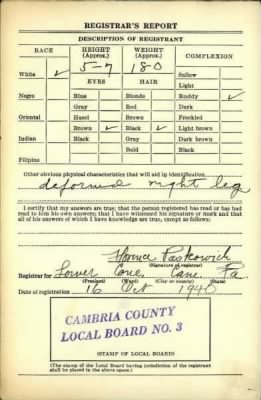 REGISTRAR'S REPORT
DESCRIPTION OF REGISTRANT
RACE HEIGHT (Approx.) WEIGHT (Approx.) COMPLEXION
5-7 180
White ✓ Sallow
EYES HAIR Light
Negro Blue Blonde Ruddy ✓
Gray Red Dark
Oriental Hazel Brown Freckled
Brown ✓ Black ✓ Light brown
Indian Black Gray Dark brown
Bald Black
Filipino
Other obvious physical characteristics that will aid in identification
deformed right leg
I certify that my answers are true; that the person registered has read or has had
read to him his own answers; that I have witnessed his signature or mark and that
all of his answers of which I have knowledge are true, except as follows:
Paskowich
(Signature of registrar)
Registrar for Lower Pa.
(Precinct) (Ward) (City or county) (State)
Date of registration 16 Oct 1940
CAMBRIA COUNTY
LOCAL BOARD NO. 3
(STAMP OF LOCAL BOARD)
(The stamp of the Local Board having jurisdiction of the registrant
shall be placed in the above space.)